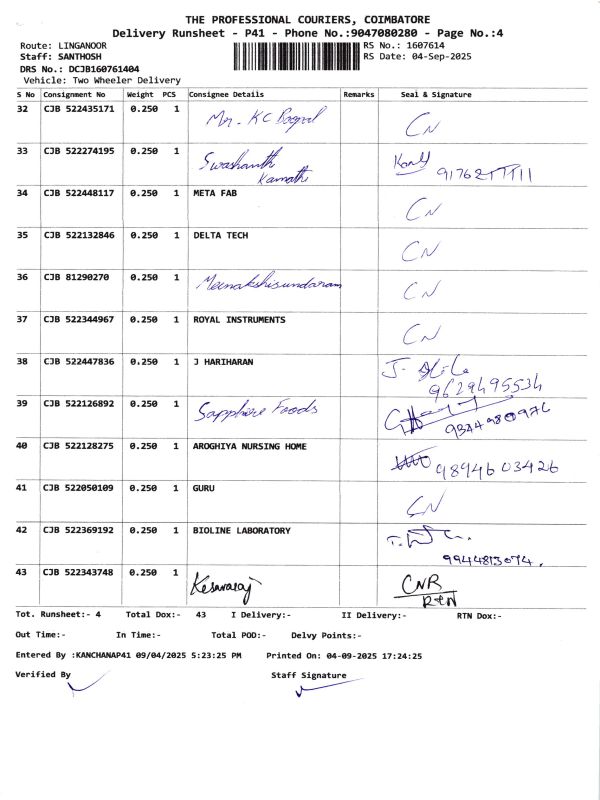 THE PROFESSIONAL COURIERS, COIMBATORE
Delivery Runsheet - P41 - Phone No.:9047080280 - Page No.:4
Route: LINGANOOR RS No.: 1607614
Staff: SANTHOSH RS Date: 04-Sep-2025
DRS No.: DCJB160761404
Vehicle: Two Wheeler Delivery
S No Consignment No Weight PCS Consignee Details Remarks Seal & Signature
32 CJB 522435171 0.250 1 Mr. KC CN
33 CJB 522274195 0.250 1 Swashanth
Kamath
34 CJB 522448117 0.250 1 META FAB CN
35 CJB 522132846 0.250 1 DELTA TECH CN
36 CJB 81290270 0.250 1 Meenakshisundaram CN
37 CJB 522344967 0.250 1 ROYAL INSTRUMENTS CN
38 CJB 522447836 0.250 1 J HARIHARAN
9629495534
39 CJB 522126892 0.250 1 Sapphire Foods
40 CJB 522128275 0.250 1 AROGHIYA NURSING HOME 9894603426
41 CJB 522050109 0.250 1 GURU CN
42 CJB 522369192 0.250 1 BIOLINE LABORATORY
9944813074.
43 CJB 522343748 0.250 1 Kesavaraj CNR
RTN
Tot. Runsheet:- 4 Total Dox:- 43 I Delivery:- II Delivery:- RTN Dox:-
Out Time:- In Time:- Total POD:- Delvy Points:-
Entered By :KANCHANAP41 09/04/2025 5:23:25 PM Printed On: 04-09-2025 17:24:25
Verified By Staff Signature